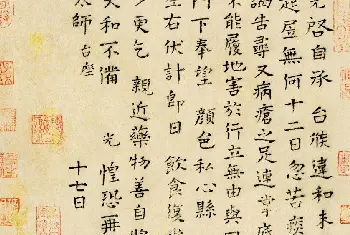 光啓自承 台候違和未
起居無何十二日忽苦痰
謁告尋又病瘡足連
不能履地害於行立無由與
門下奉望 顔色私心縣
左右伏計即日 飲食復
少更乞 親近藥物善自將
太和不備 光 惶恐再
太師 台座 十七日